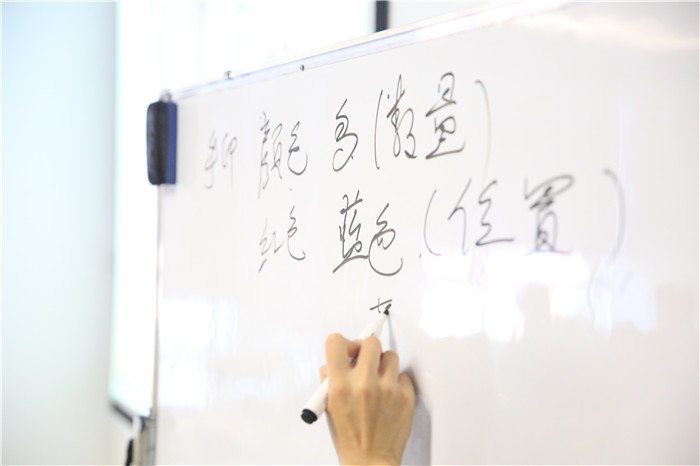 颜色 (数量)
红色 蓝色 (位置)